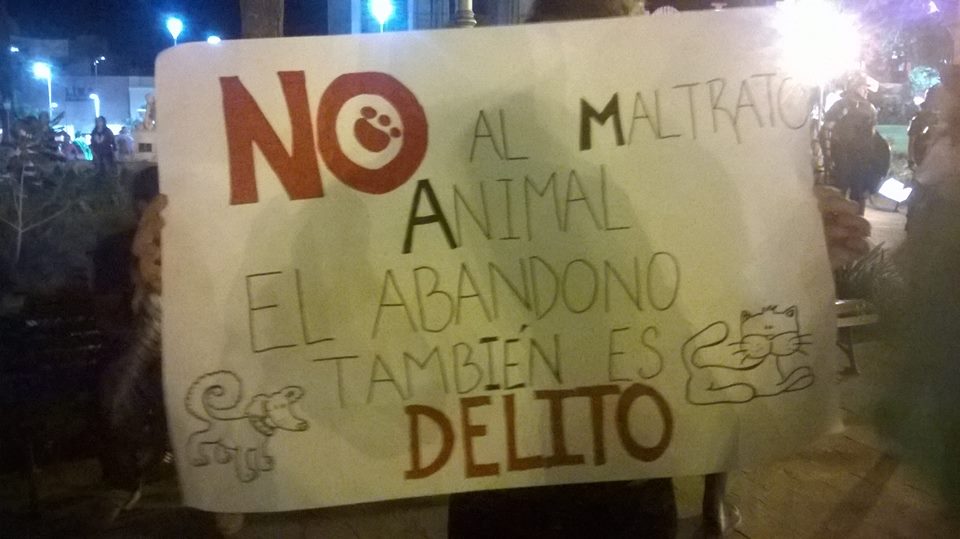 NO AL MALTRATO
ANIMAL
EL ABANDONO
TAMBIÉN ES
DELITO